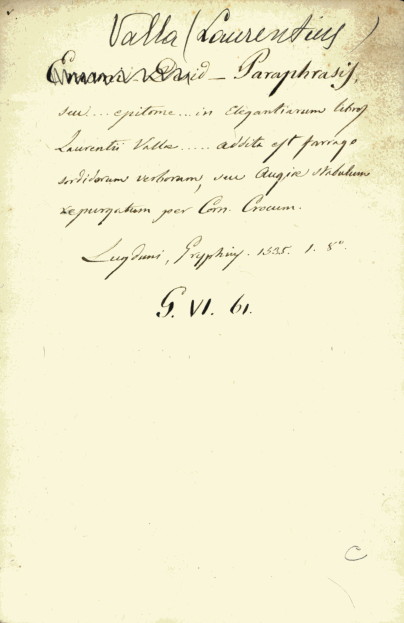 Valla (Laurentius)
Paraphrasis,
seu ... epitome ... in Elegantiarum libros
Laurentii Vallæ ..... addita est farrago
sordidorum verborum, seu Augiæ stabulum
repurgatum per Corn. Crocum.
Lugduni, Gryphius. 1535. 1. 8°
G. VI. 61.
C